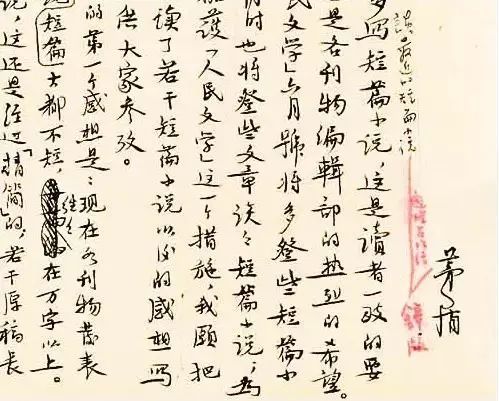 談最近的短篇小说
茅盾
多写短篇小说，这是讀者一致的要
是各刊物编輯部的热烈的希望。
民文学」六月號将多登些短篇小
时也将登些文章谈々短篇小说，为
护「人民文学」这一个措施，我願把
读了若干短篇小说以後的感想写
供大家参考。
的第一个感想是：现在各刊物发表
短篇大都不短，往往在万字以上。
说，这还是经过「精简」的，若干原稿长